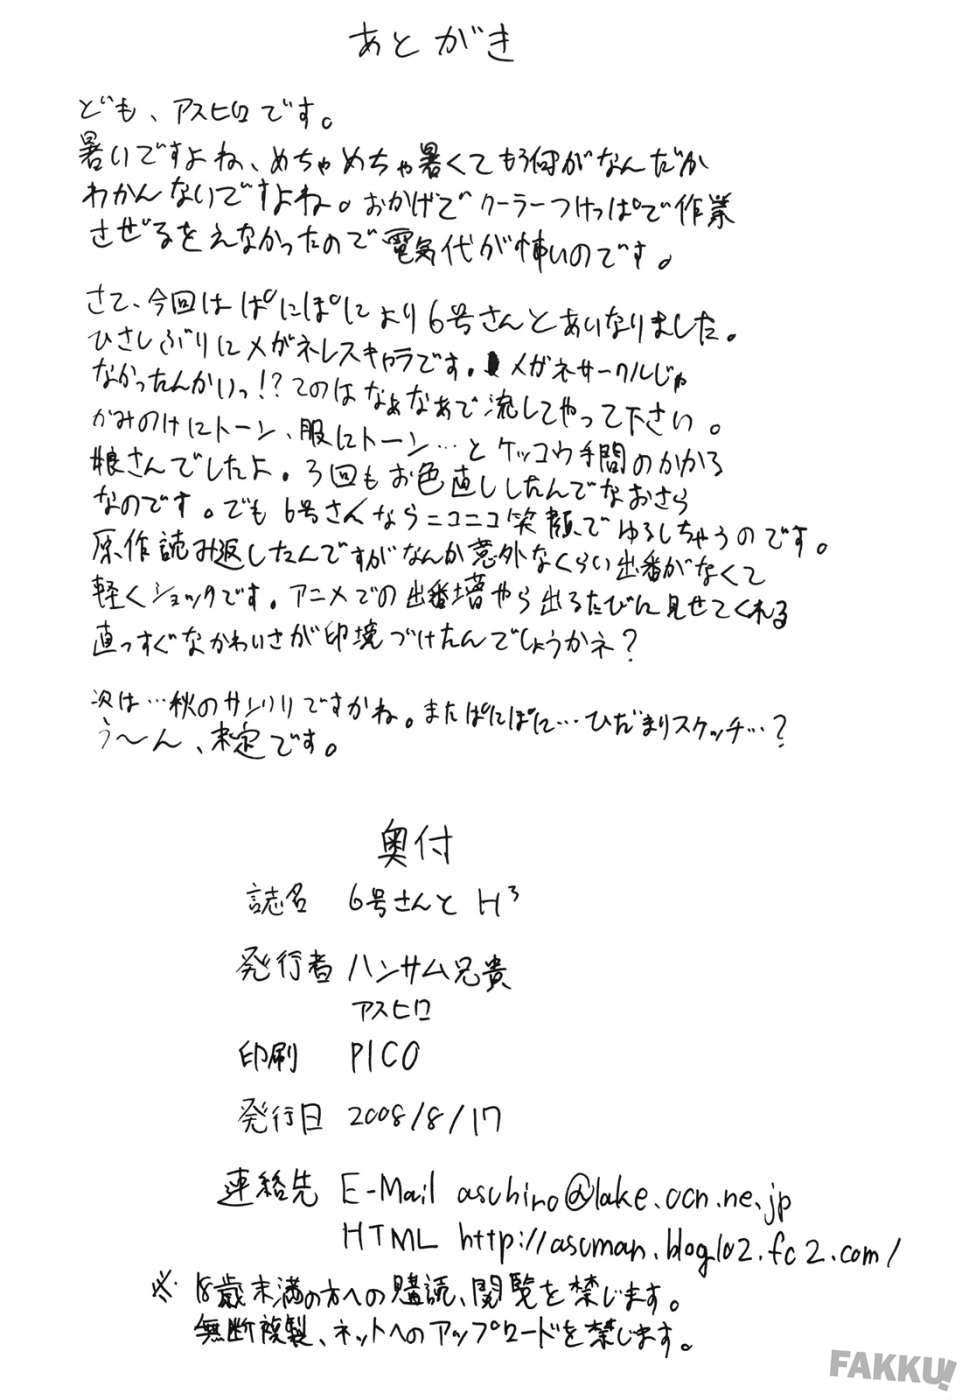 あとがき
ども、アスヒロです。
暑いですよね、めちゃめちゃ暑くてもう何がなんだか
わかんないですよね。おかげでクーラーつけっぱで作業
させざるをえなかったので電気代が怖いのです。
さて、今回はぱにぽにより6号さんとあいなりました。
ひさしぶりにメガネレスキャラです。メガネサークルじゃ
なかったんかいっ!?てのはなぁなあで流してやって下さい。
かみのけにトーン、服にトーン…とケッコウ手間のかかる
娘さんでしたよ。3回もお色直ししたんでなおさら
なのです。でも6号さんならニコニコ笑顔でゆるしちゃうのです。
原作読み返したんですがなんか意外なくらい出番がなくて
軽くショックです。アニメでの出番増やら出るたびに見せてくれる
直っすぐなかわいさが印境づけたんでしょうかネ?
次は…秋のサンクリですかね。またぱにぽに…ひだまりスケッチ…?
う〜ん、未定です。
奥付
誌名 6号さんとH³
発行者 ハンサム兄貴
アスヒロ
印刷 PICO
発行日 2008/8/17
連絡先 E-Mail asuhiro@lake.ocn.ne.jp
HTML http://asuman.blog102.fc2.com/
※18歳未満の方への購読、閲覧を禁じます。
無断複製、ネットへのアップロードを禁じます。
FAKKU!